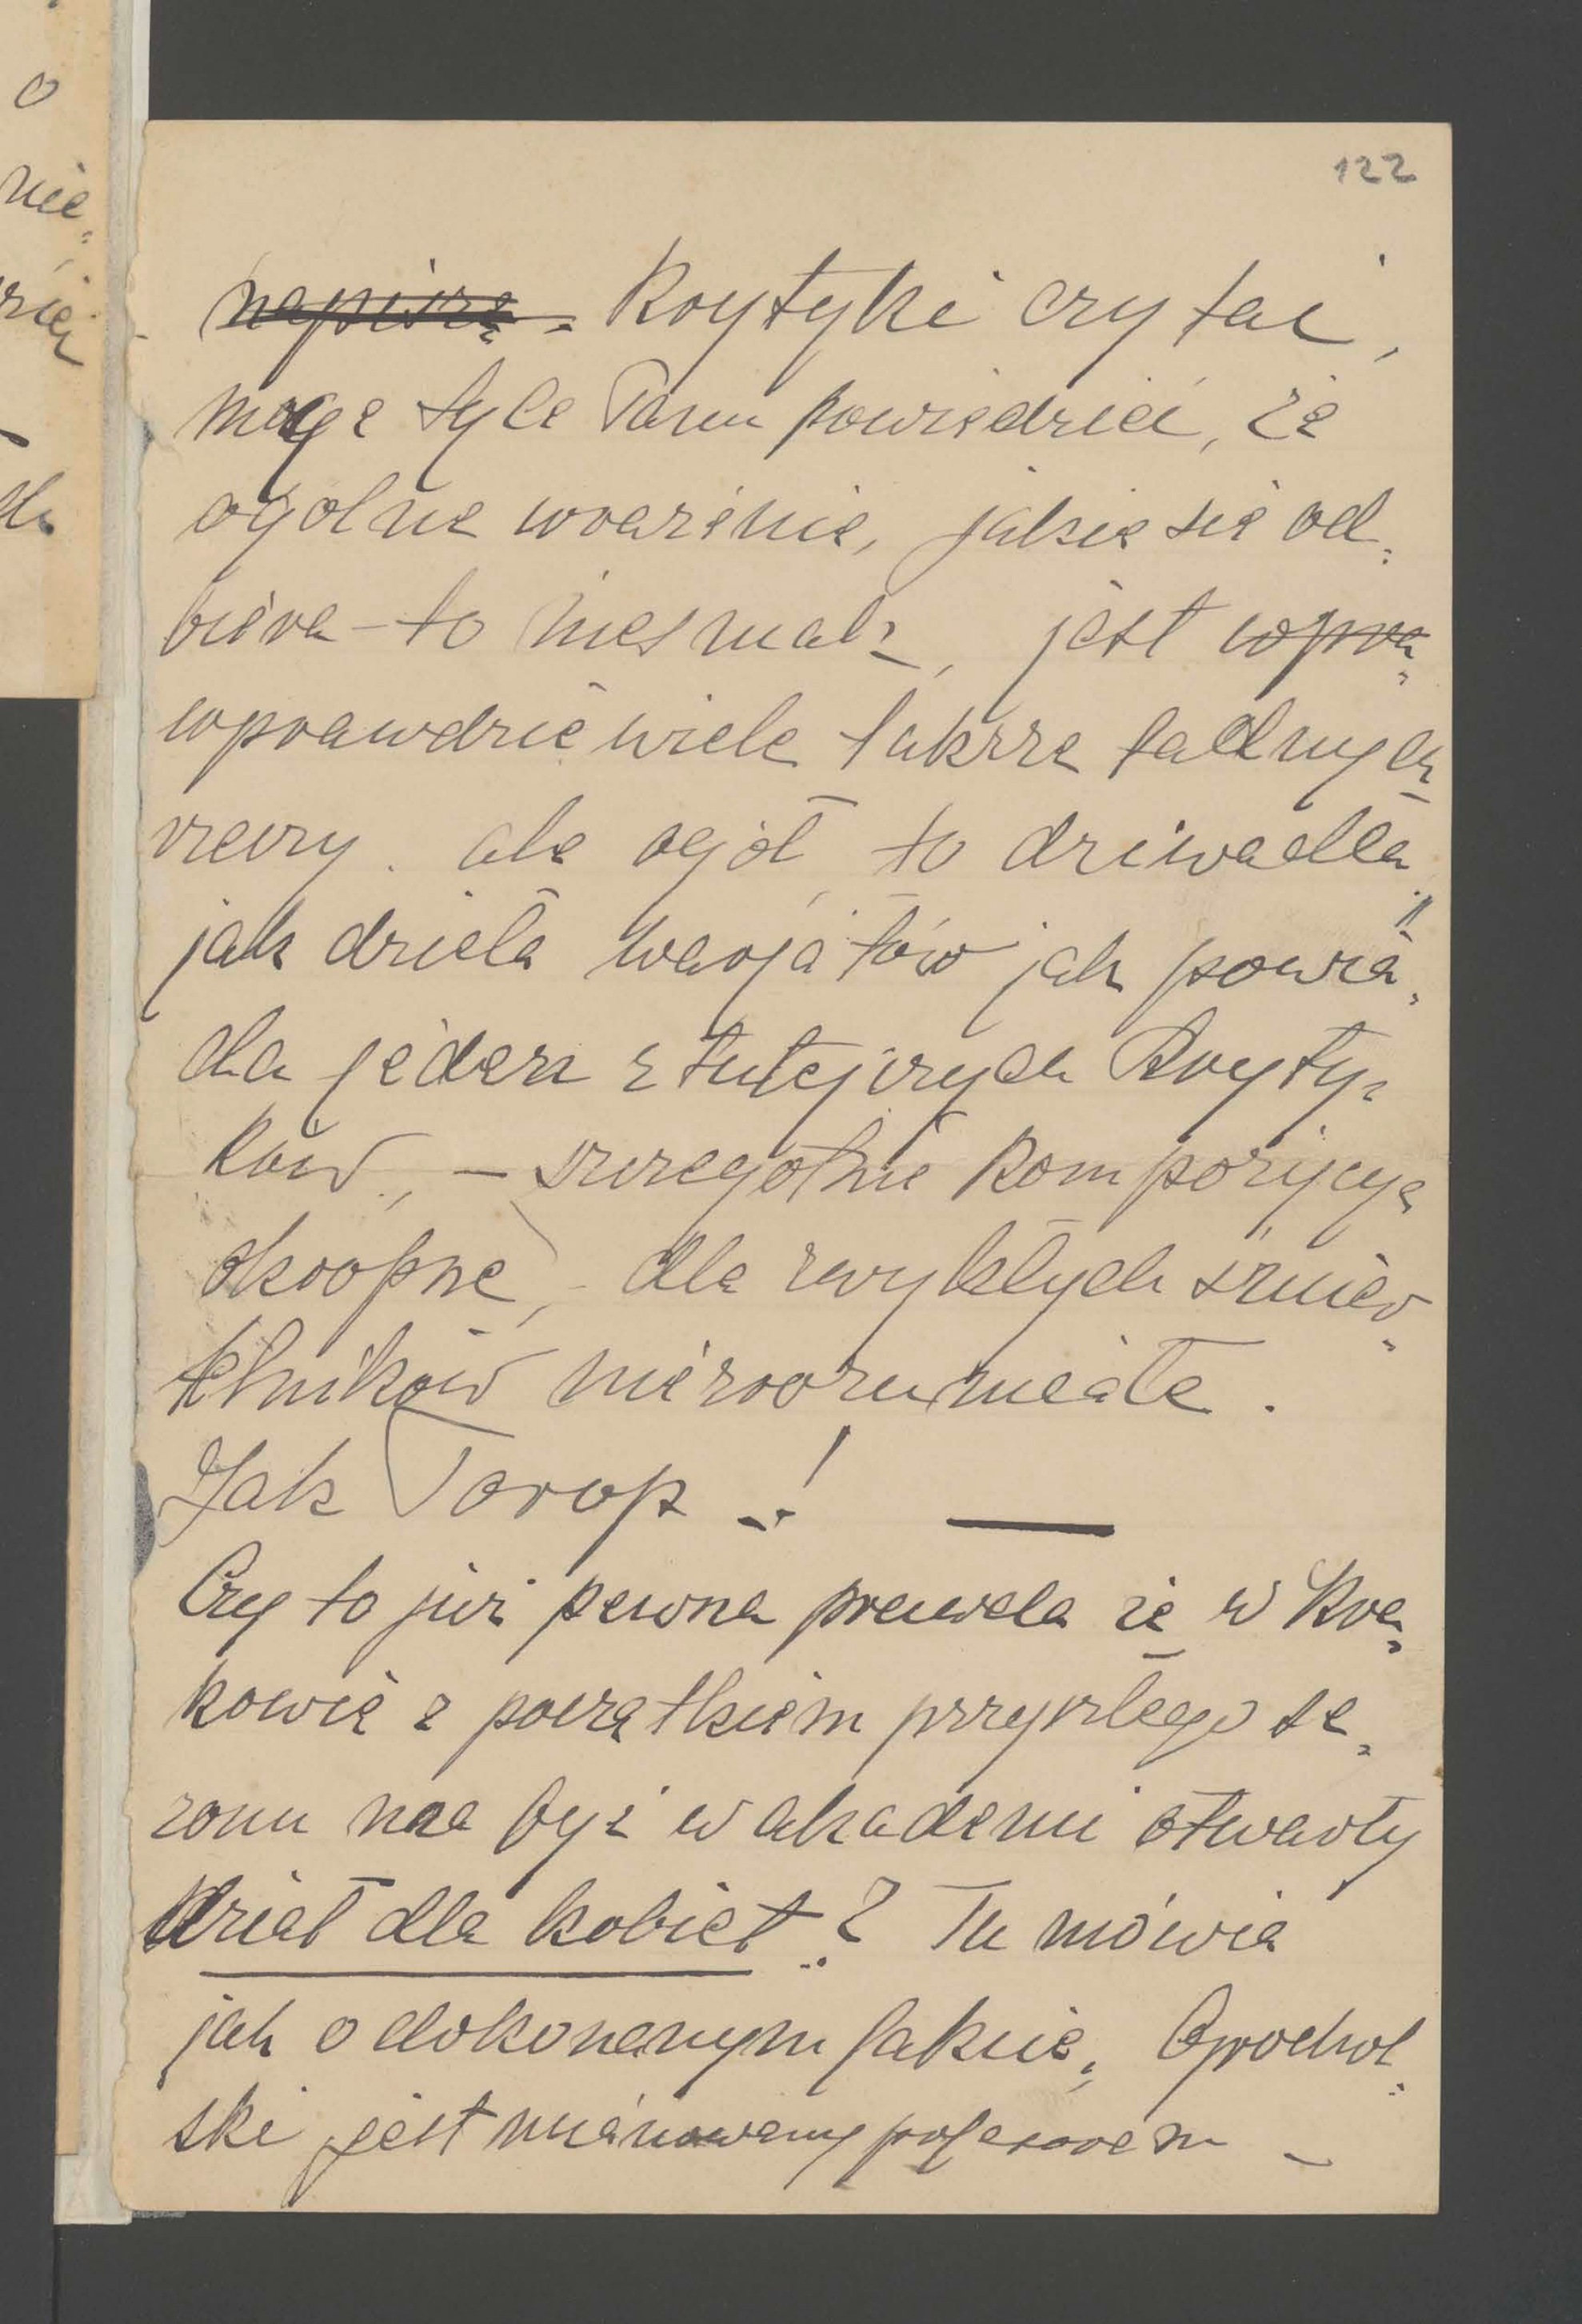 122
napiszę - Krytyki czytać,
mogę tyle Panu powiedzieć, że
ogólne wrażenie, jakie się od„
biera - to niesmak, jest wpra„
wprawdzie wiele także ładnych
rzeczy. ale ogół, to dziwadła,
jak dzieła warjatów" jak powia„
da jeden z tutejszych kryty„
ków, - szczególnie kompozycye
okropne, - dla zwykłych śmier„
telników niezrozumiałe.
Jak Torop !
Czy to już pewna prawda że w Kra„
kowie z początkiem przyszłego se„
zonu ma być w akademii otwarty
dział dla kobiet? Tu mówią
jak o dokonanym fakcie,
ski jest mianowany profesorem -
o
nie„